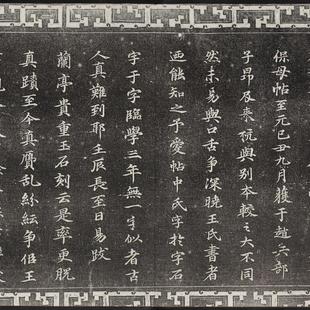 保母帖至元己丑九月獲于趙兵部
子昂及來杭與別本較之大不同
然未易與口舌爭深曉王氏書者
迺能知之予愛帖中氏字於字石
字于字臨學三年無一字似者古
人真難到耶壬辰長至日易跋
蘭亭貴重玉石刻云是率更脫
真蹟至今真贗亂紛紜爭佀王